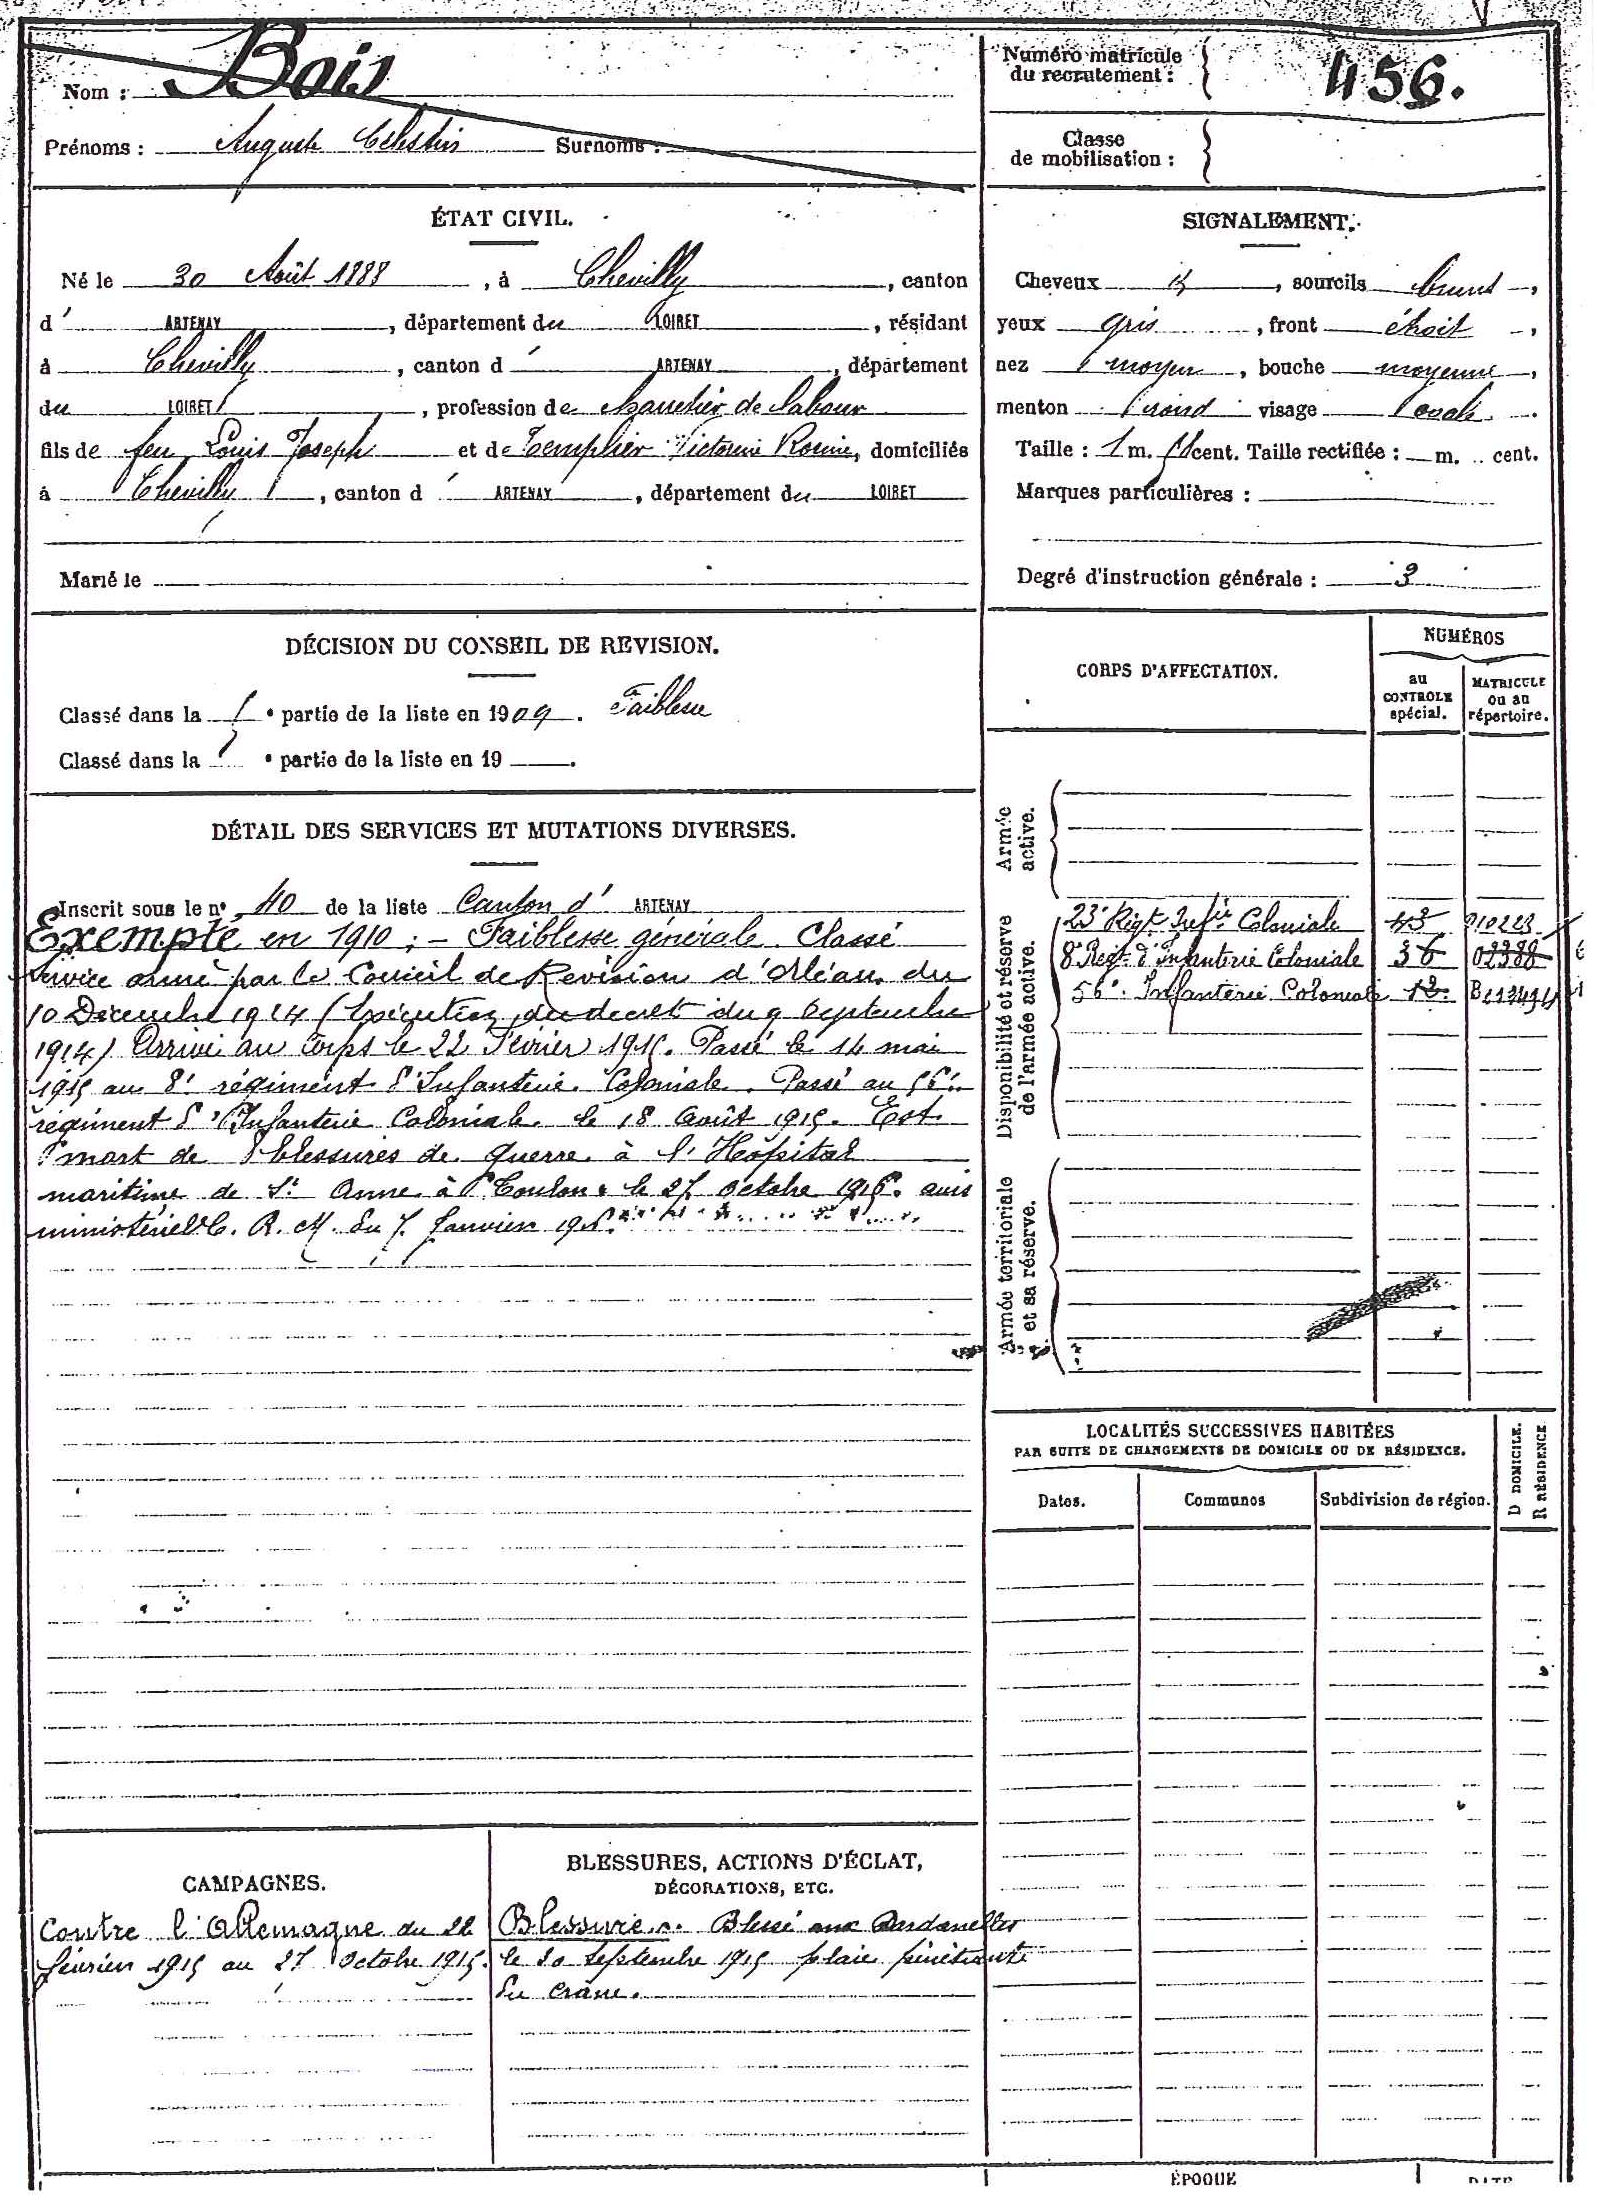 Nom : Bois
Prénoms : Auguste Célestin Surnoms :
Numéro matricule
du recrutement : 456.
Classe
de mobilisation :
ÉTAT CIVIL.
Né le 30 Août 1888, à Chevilly, canton
d' ARTENAY, département du LOIRET, résidant
à Chevilly, canton d' ARTENAY, département
du LOIRET, profession de charretier de labour
fils de feu Louis Joseph et de Templier Victorine Rosine, domiciliés
à Chevilly, canton d' ARTENAY, département du LOIRET
Marié le
SIGNALEMENT.
Cheveux , sourcils bruns,
yeux gris, front étroit,
nez moyen, bouche moyenne,
menton rond visage ovale.
Taille : 1 m. cent. Taille rectifiée : m. cent.
Marques particulières :
Degré d'instruction générale : 3
DÉCISION DU CONSEIL DE REVISION.
Classé dans la e partie de la liste en 1909. Faiblesse
Classé dans la e partie de la liste en 19 .
DÉTAIL DES SERVICES ET MUTATIONS DIVERSES.
Inscrit sous le n° 40 de la liste Canton d' ARTENAY
Exempté en 1910 ; - Faiblesse générale. Classé
service armé par le Conseil de Révision d'Orléans du
10 Décembre 1914 (Exécution du décret du 9 Septembre
1914) Arrivé au Corps le 22 Février 1915. Passé le 14 mai
1915 au 8e régiment d'Infanterie Coloniale. Passé au 56e
régiment d'Infanterie Coloniale le 18 Août 1915. Est
mort de blessures de guerre à l'Hôpital
maritime de St Anne à Toulon le 27 octobre 1915. avis
ministériel C. R. M. du 7 Janvier
CORPS D'AFFECTATION.
NUMÉROS
au
CONTROLE
spécial.
MATRICULE
ou au
répertoire.
Armée
active.
Disponibilité et réserve
de l'armée active.
23e Régt Infie Coloniale 43 910223
8e Régt d'Infanterie Coloniale 36 02388
56e Infanterie Coloniale
Armée territoriale
et sa réserve.
LOCALITÉS SUCCESSIVES HABITÉES
PAR SUITE DE CHANGEMENTS DE DOMICILE OU DE RÉSIDENCE.
Dates.
Communes
Subdivision de région.
D DOMICILE.
R RÉSIDENCE
CAMPAGNES.
Contre l'Allemagne du 22
février 1915 au 27 Octobre 1915.
BLESSURES, ACTIONS D'ÉCLAT,
DÉCORATIONS, ETC.
Blessures. Blessé aux Dardanelles
le 30 Septembre 1915 plaie pénétrante
du crâne.
ÉPOQUE
DATE